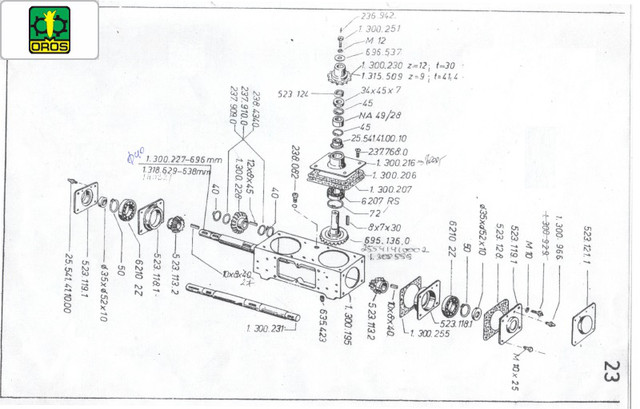 OROS
236.942
1.300.251
M 12
636.537
1.300.230 z=12; t=30
1.315.509 z=9; t=41,4
523.124
34x45x7
45
NA 49/28
45
25.541.41.00.10
237.768.0
1.300.216
1.300.206
1.300.207
6207 RS
72
8x7x30
695.136.0
238.4340
237.910.0
237.909.0
1.300.227-696mm
1.318.629-638mm
12x8x45
1.300.228
40
40
238.082
25.541.41.10.00
523.119.1
ø35xø52x10
50
6210 2Z
523.118.1
523.113.2
10x8x40
1.300.231
635.423
1.300.195
523.113.2
10x8x40
1.300.255
523.118.1
6210 2Z
50
ø35xø52x10
523.128
523.119.1
M 10
1.300.966
523.121.1
M 10x25
23